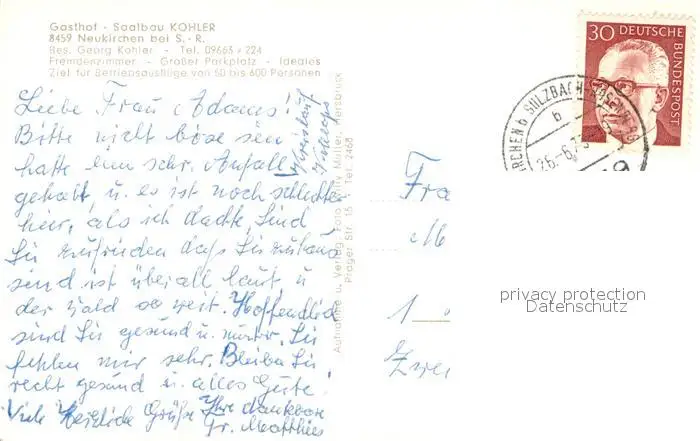 Gasthof - Saalbau KOHLER
8459 Neukirchen bei S.-R.
Bes. Georg Kohler - Tel. 09663 / 224
Fremdenzimmer - Großer Parkplatz - Ideales
Ziel für Betriebsausflüge von 50 bis 600 Personen
Liebe Frau Adams!
Bitte nicht böse sein
hatte ein schr. Anfall
gehabt, u. es ist noch schlechter
hier, als ich dachte. Sind
Sie zufrieden daß Sie zuhaus
sind ist überall laut, u
der Wald so weit. Hoffendlich
sind Sie gesund u. Sie
fehlen mir sehr. Bleiben Sie
recht gesund u. alles Gute!
Viele Herzliche Grüße Ihre dankbare
Gr. Matthies
Kreislauf
Kollaps
Aufnahme u. Verlag Foto Willy Müller, Hersbruck
Prager Str. 15 - Tel. 2468
30 DEUTSCHE
BUNDESPOST
KIRCHEN b SULZBACH-ROSENBERG
b
26.-6.73
Fra
1
Zwei
privacy protection
Datenschutz